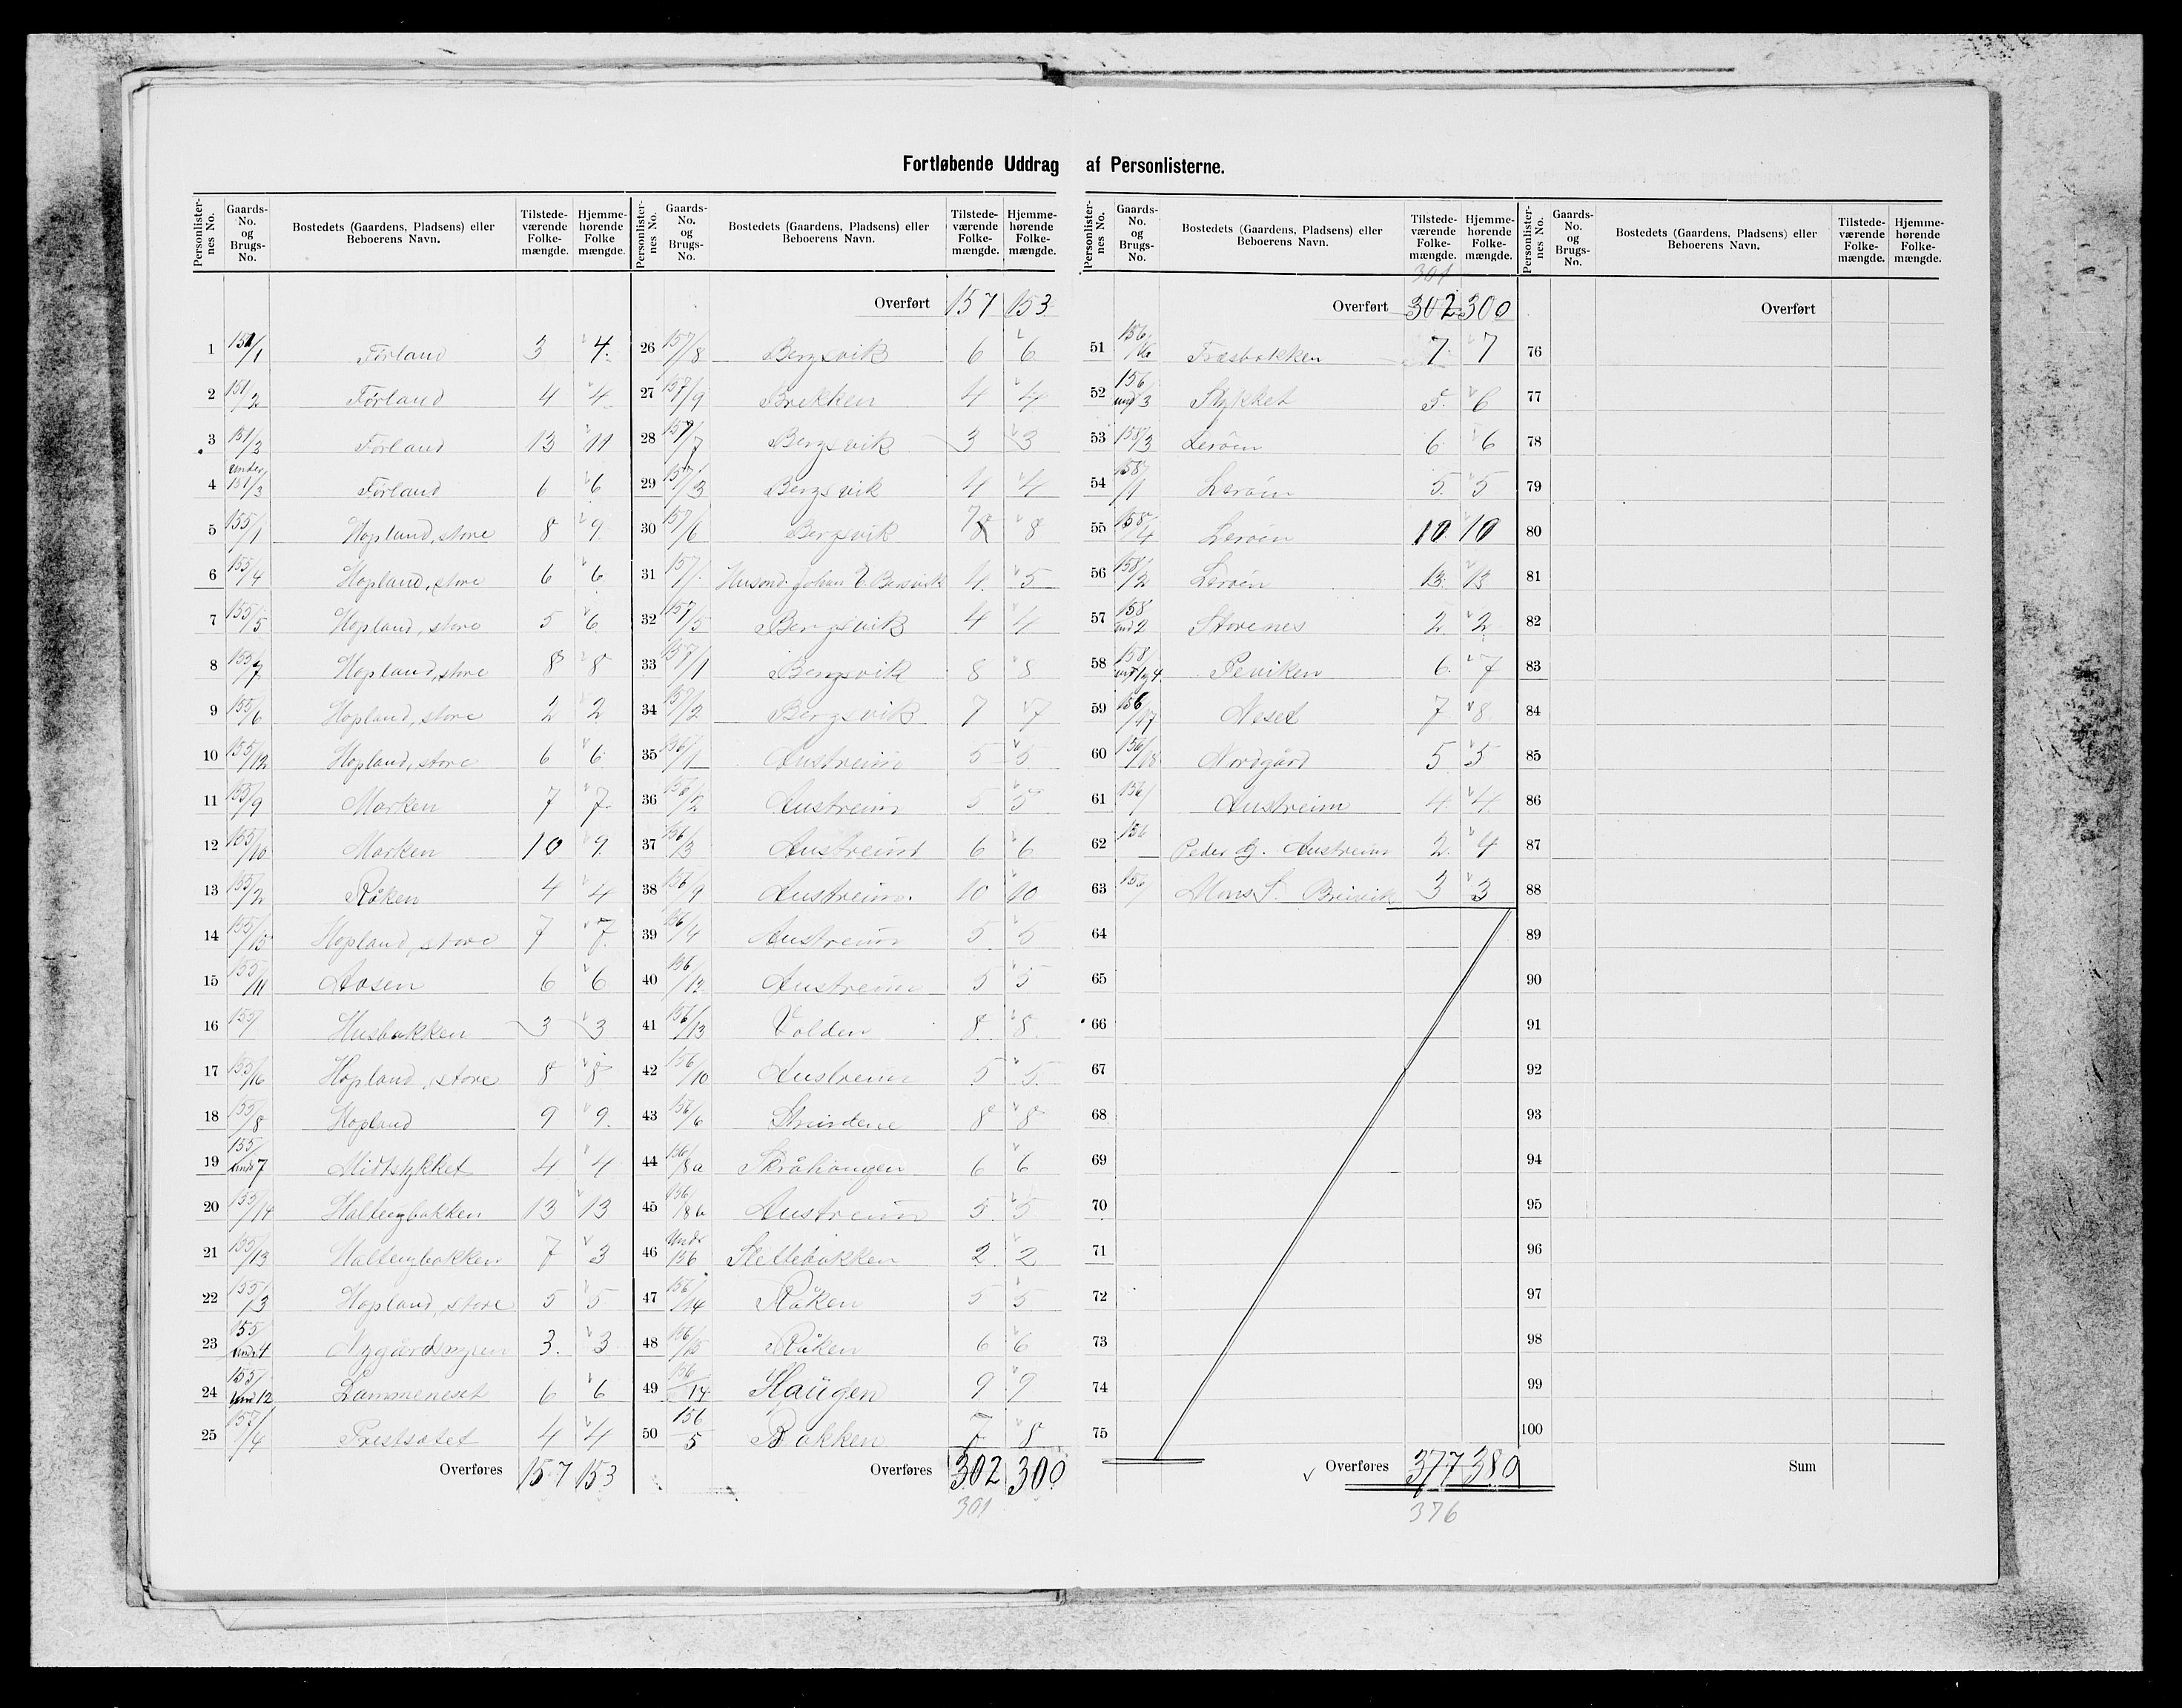 Fortløbende Uddrag af Personlisterne.
Personlister-nes No. Gaards-No. og Brugs-No. Bostedets (Gaardens, Pladsens) eller Beboerens Navn. Tilstede-værende Folke-mængde. Hjemme-hørende Folke mængde.
1 151/1 Førland 3 4.
2 151/2 Førland 4 4
3 151/3 Førland 13 11
4 under 151/3 Førland 6 6
5 155/1 Hopland, store 8 9
6 155/4 Hopland, store 6 6
7 155/5 Hopland, store 5 6
8 155/7 Hopland, store 8 8
9 155/6 Hopland, store 2 2
10 155/12 Hopland, store 6 6
11 155/9 Marken 7 7
12 155/10 Marken 10 9
13 155/2 Råken 4 4
14 155/15 Hopland, store 7 7
15 155/11 Aasen 6 6
16 155/ Husbakken 3 3
17 155/16 Hopland, store 8 8
18 155/8 Hopland 9 9.
19 155/ und 7 Midtstykket 4 4
20 155/14 13 13
21 155/13 7 3
22 155/3 Hopland, store 5 5
23 155/ und 4 Nygårdsmyren 3. 3
24 155/ und 12 Lammeneset 6 6
25 157/4 4 4
Overføres 157 153
Personlister-nes No. Gaards-No. og Brugs-No. Bostedets (Gaardens, Pladsens) eller Beboerens Navn. Tilstede-værende Folke-mængde. Hjemme-hørende Folke-mængde.
Overført 157 153
26 157/8 Bergsvik 6 6
27 157/9 Brekken 4 4
28 157/7 Bergsvik 3 3
29 157/3 Bergsvik 4 4
30 157/6 Bergsvik 7 8
31 157/ Johan E. Bersvik 4 5
32 157/5 Bergsvik 4 4
33 157/1 Bergsvik 8 8
34 157/2 Bergsvik 7 7
35 156/1 Austreim 5 5
36 156/2 Austreim 5 5
37 156/3 Austreim 6 6
38 156/9 Austreim. 10 10
39 156/4 Austreim 5 5
40 156/12 Austreim 5 5
41 156/13 Volden 8 8
42 156/10 Austreim 5 5
43 156/6 8 8
44 156/8a Skråhaugen 6 6
45 156/8b Austreim 5 5
46 Under 156 Slettebakken 2 2
47 156/14 Råken 5 5
48 156/15 Råken 6 6
49 156/14 Haugen 9 9
50 156/5 Bakken 7 8
Overføres 302 300
301
Personlister-nes No. Gaards-No. og Brugs-No. Bostedets (Gaardens, Pladsens) eller Beboerens Navn. Tilstede-værende Folke-mængde. Hjemme-hørende Folke-mængde.
301
Overført 302 300
51 156/16 Træsbakken 7 7
52 156 und 3 Stykket 5. 6
53 158/3 Lerøen 6 6
54 158/1 Lerøen 5 5
55 158/4 Lerøen 10 10
56 158/2 Lerøen 13 13
57 158 und 2 Storenes 2 2
58 158/ und 1 og 4. Peviken 6. 7
59 156/17 Neset 7 8
60 156/18 Nordgård 5 5
61 156/ Austreim 4 4
62 156 Peder Austreim 2 4
63 156/ Mons S. Breivik 3 3
64
65
66
67
68
69
70
71
72
73
74
75
Overføres 377 380
376
Personlister-nes No. Gaards-No. og Brugs-No. Bostedets (Gaardens, Pladsens) eller Beboerens Navn. Tilstede-værende Folke-mængde. Hjemme-hørende Folke-mængde.
Overført
76
77
78
79
80
81
82
83
84
85
86
87
88
89
90
91
92
93
94
95
96
97
98
99
100
Sum